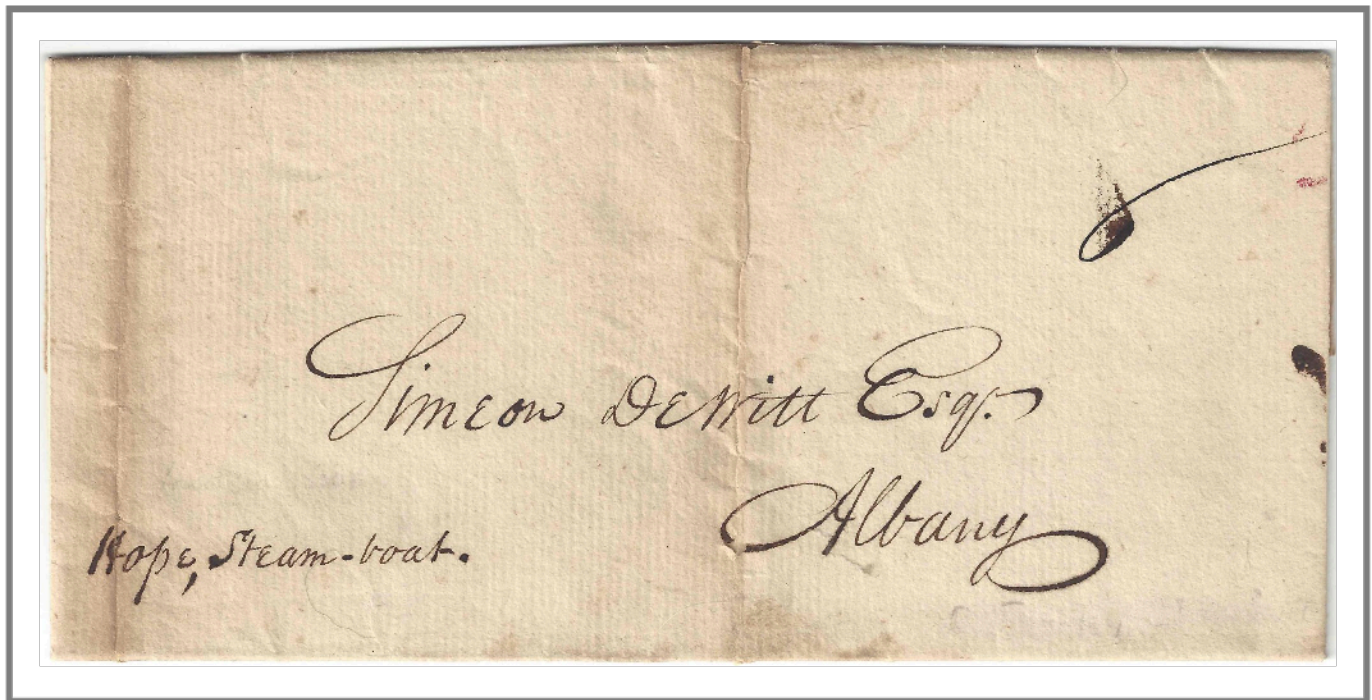 Simeon DeWitt Esqr.
Albany
Hope, Steam-boat.